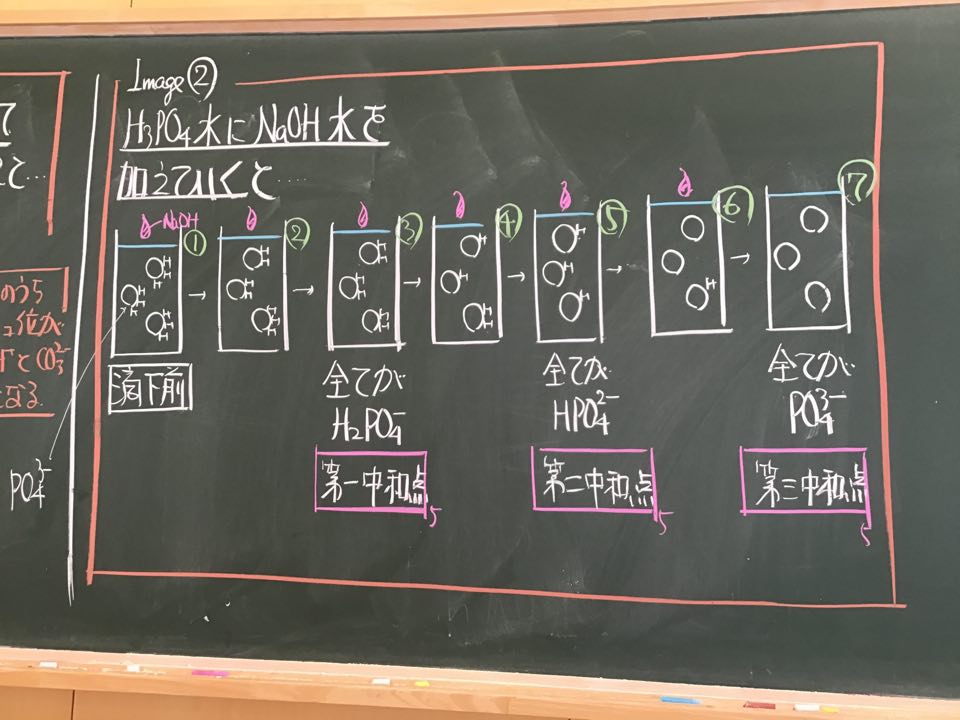 て
と...
のうち
位が
とCO₃²⁻
なる.
PO₄³⁻
Image②
H₃PO₄水にNaOH水を
加えていくと……
NaOH
① ② ③ ④ ⑤ ⑥ ⑦
滴下前
全てが
H₂PO₄⁻
第一中和点
全てが
HPO₄²⁻
第二中和点
全てが
PO₄³⁻
第三中和点